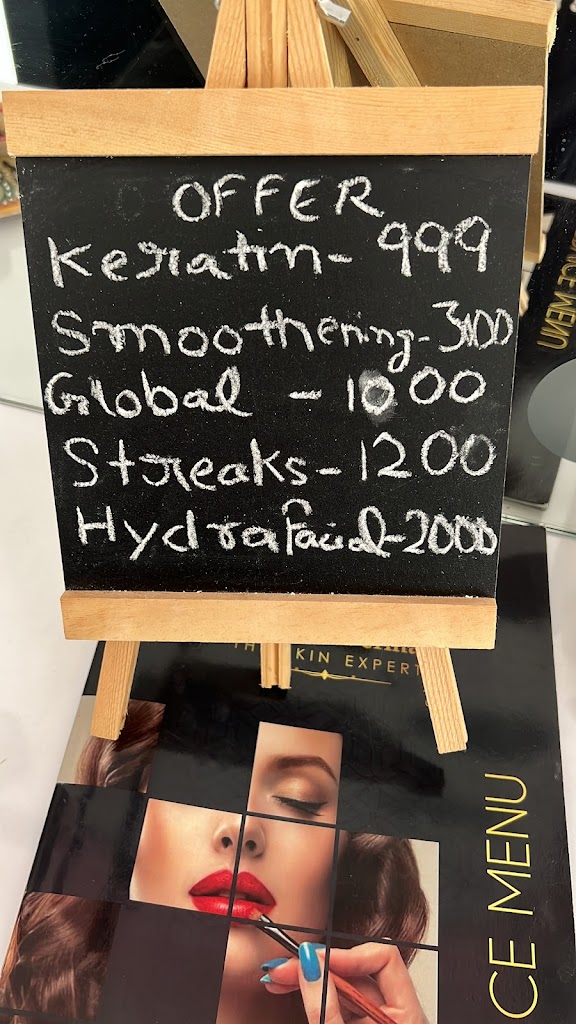 OFFER
Keratin - 999
Smoothering - 3000
Global - 1000
Streaks - 1200
Hydrafacial - 2000
KIN EXPERT
CE MENU